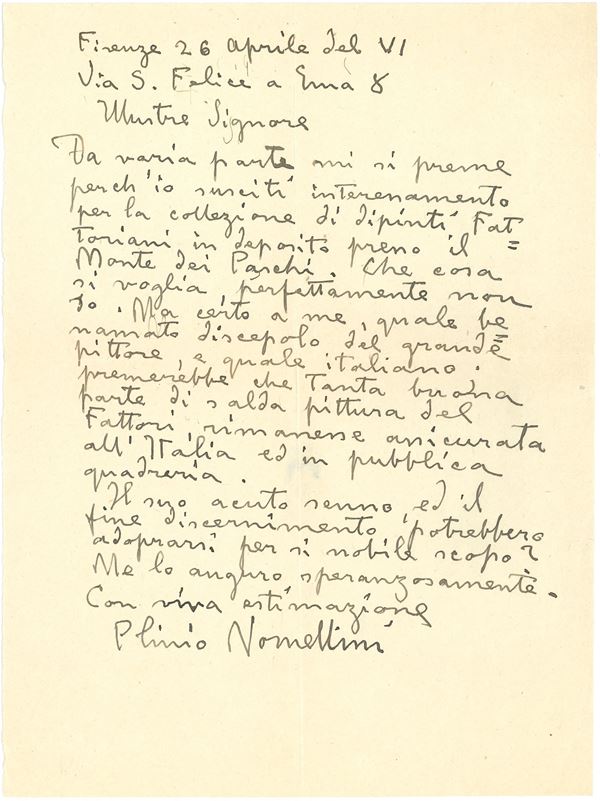 Firenze 26 aprile del VI
Via S. Felice a Ema 8
Illustre Signore
Da varia parte mi si preme
perch'io susciti interessamento
per la collezione di dipinti Fat=
toriani in deposito presso il
Monte dei Paschi. Che cosa
si voglia perfettamente non
so. Ma certo a me, quale be=
namato discepolo del grande
pittore, e quale italiano.
premerebbe che tanta buona
parte di salda pittura del
Fattori, rimanesse assicurata
all'Italia ed in pubblica
quadreria.
Il suo acuto senno, ed il
fine discernimento potrebbero
adoprarsi per sì nobile scopo?
Me lo auguro speranzosamente.
Con viva estimazione
Plinio Nomellini